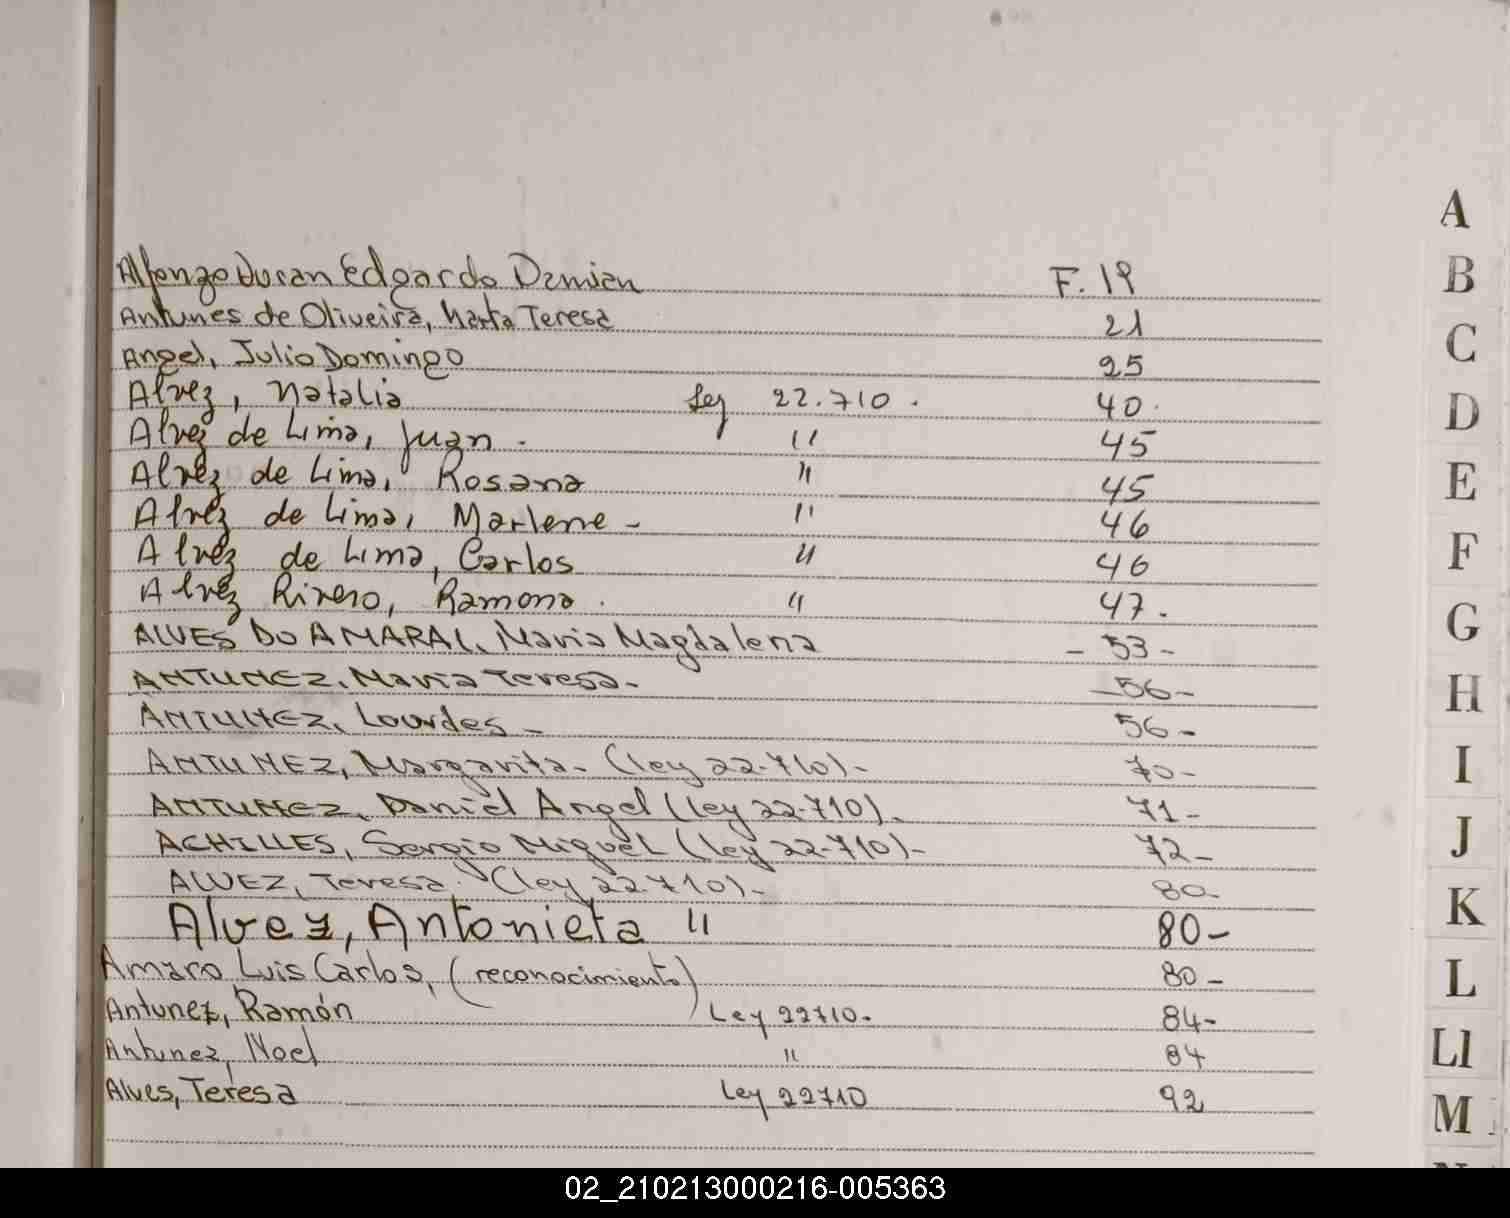 A
B
C
D
E
F
G
H
I
J
K
L
Ll
M
Alfonzo Duran Edgardo Damian F. 19
Antunes de Oliveira, Marta Teresa 21
Angel, Julio Domingo 25
Alvez, Natalia Ley 22.710. 40.
Alvez de Lima, Juan. " 45
Alvez de Lima, Rosana " 45
Alvez de Lima, Marlene - " 46
Alvez de Lima, Carlos " 46
Alvez Rivero, Ramona. " 47.
ALVES DO AMARAL, Maria Magdalena - 53 -
ANTUNEZ, Maria Teresa. - 56 -
ANTUNEZ, Lourdes - 56 -
ANTUNEZ, Margarita - (ley 22.710) - 70 -
ANTUNEZ, Daniel Angel (ley 22.710). 71 -
ACHILLES, Sergio Miguel (ley 22.710) - 72 -
ALVEZ, Teresa. (ley 22.710) - 80 -
Alvez, Antonieta " 80 -
Amaro Luis Carlos, (reconocimiento) 80 -
Antunez, Ramón Ley 22710. 84 -
Antunez, Noel " 84
Alves, Teresa Ley 22710 92
02_210213000216-005363